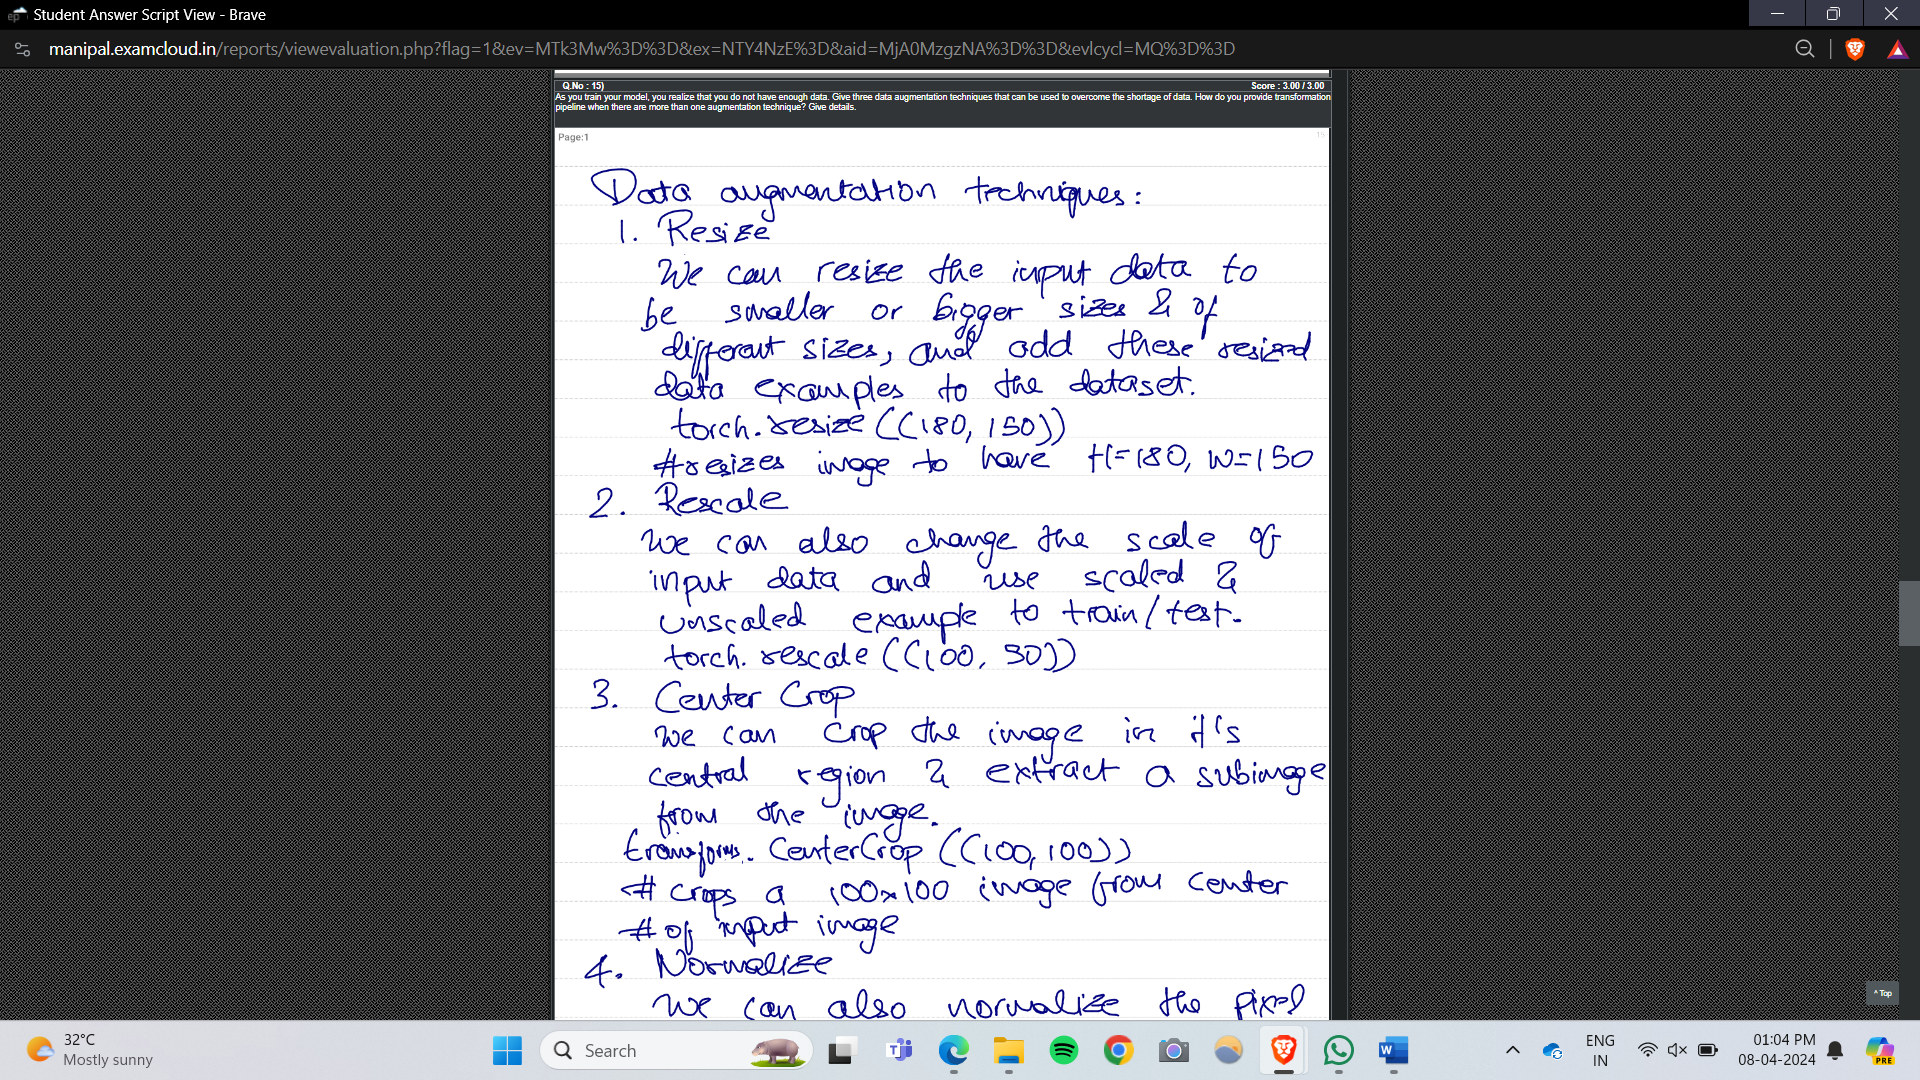 Student Answer Script View - Brave
manipal.examcloud.in/reports/viewevaluation.php?flag=1&ev=MTk3Mw%3D%3D&ex=NTY4NzE%3D&aid=MjA0MzgzNA%3D%3D&evlcycl=MQ%3D%3D
Q.No : 15)
Score : 3.00 / 3.00
As you train your model, you realize that you do not have enough data. Give three data augmentation techniques that can be used to overcome the shortage of data. How do you provide transformation
pipeline when there are more than one augmentation technique? Give details.
Page:1
15
Data augmentation techniques:
1. Resize
We can resize the input data to
be smaller or bigger sizes & of
different sizes, and add these resized
data examples to the dataset.
torch.resize ((180, 150))
#resizes image to have H=180, W=150
2. Rescale
We can also change the scale of
input data and use scaled &
unscaled example to train/test.
torch.rescale ((100, 50))
3. Center Crop
We can crop the image in it's
central region & extract a subimage
from the image.
transforms.CenterCrop ((100, 100))
# crops a 100x100 image from center
# of input image
4. Normalize
We can also normalize the pixel
^ Top
32°C
Mostly sunny
Search
ENG
IN
01:04 PM
08-04-2024
PRE